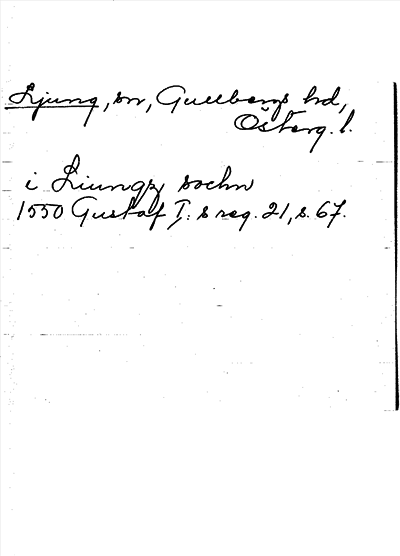 Ljung, sn, Gullbergs hd,
Österg. l.
i Liungz sochn
1550 Gustaf I:s reg. 21, s. 67.